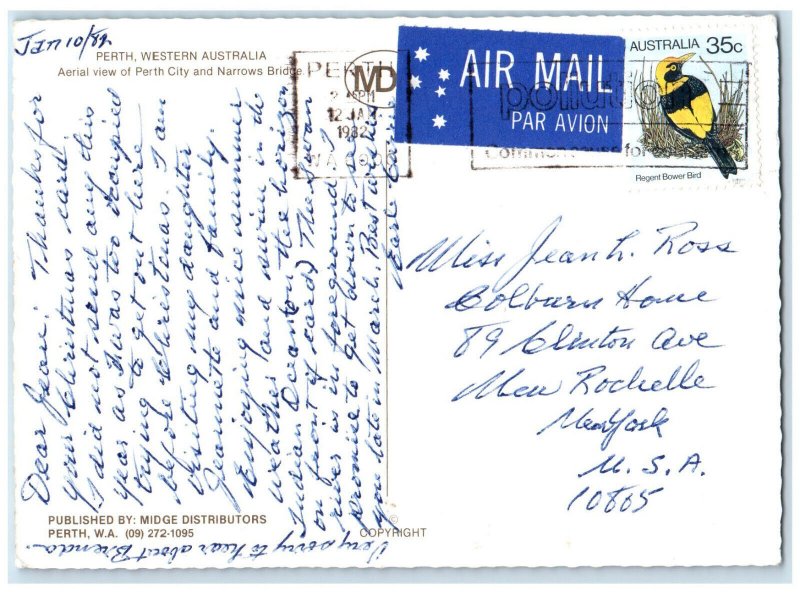 Jan 10/82
PERTH, WESTERN AUSTRALIA
Aerial view of Perth City and Narrows Bridge.
Dear Jean: Thanks for
your Christmas card.
I did not send any this
year as I was too occupied
trying to get out here
before Christmas. I am
visiting my daughter
Jeannette and family.
Enjoying nice summer
weather and swim in the
Indian Ocean (on the horizon
on front of card) The Swan
river is in foreground. I
promise to get down to see
you late in March. Best wishes
Very sorry to hear about Brenda.
PUBLISHED BY: MIDGE DISTRIBUTORS
PERTH, W.A. (09) 272-1095
© COPYRIGHT
PERTH
MD
12 JAN
1982
AIR MAIL
PAR AVION
pollution
AUSTRALIA 35c
Regent Bower Bird
Miss Jean L. Ross
Colburn Home
89 Clinton Ave
New Rochelle
New York
U. S. A.
10805